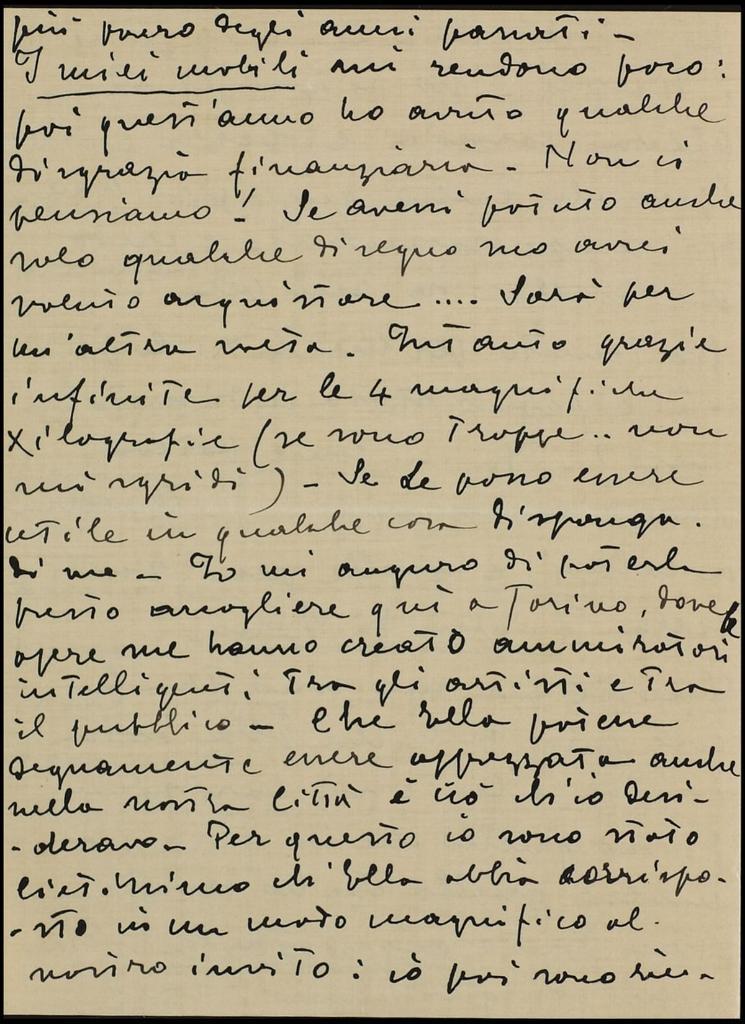 più povero degli anni passati -
I miei mobili mi rendono poco:
poi quest'anno ho avuto qualche
disgrazia finanziaria - Non ci
pensiamo! Se avessi potuto anche
solo qualche disegno suo avrei
voluto acquistare .... Sarà per
un'altra volta. Intanto grazie
infinite per le 4 magnifiche
xilografie (se sono troppe .. non
mi sgridi) - Se Le posso essere
utile in qualche cosa disponga
di me - Io mi auguro di poterla
presto accogliere qui a Torino, dove le
opere sue hanno creato ammiratori
intelligenti tra gli artisti e tra
il pubblico - Che Ella potesse
degnamente essere apprezzata anche
nella nostra Città è ciò ch'io desi-
-deravo - Per questo io sono stato
lietissimo ch'Ella abbia corrispo-
-sto in un modo magnifico al
nostro invito: io poi sono